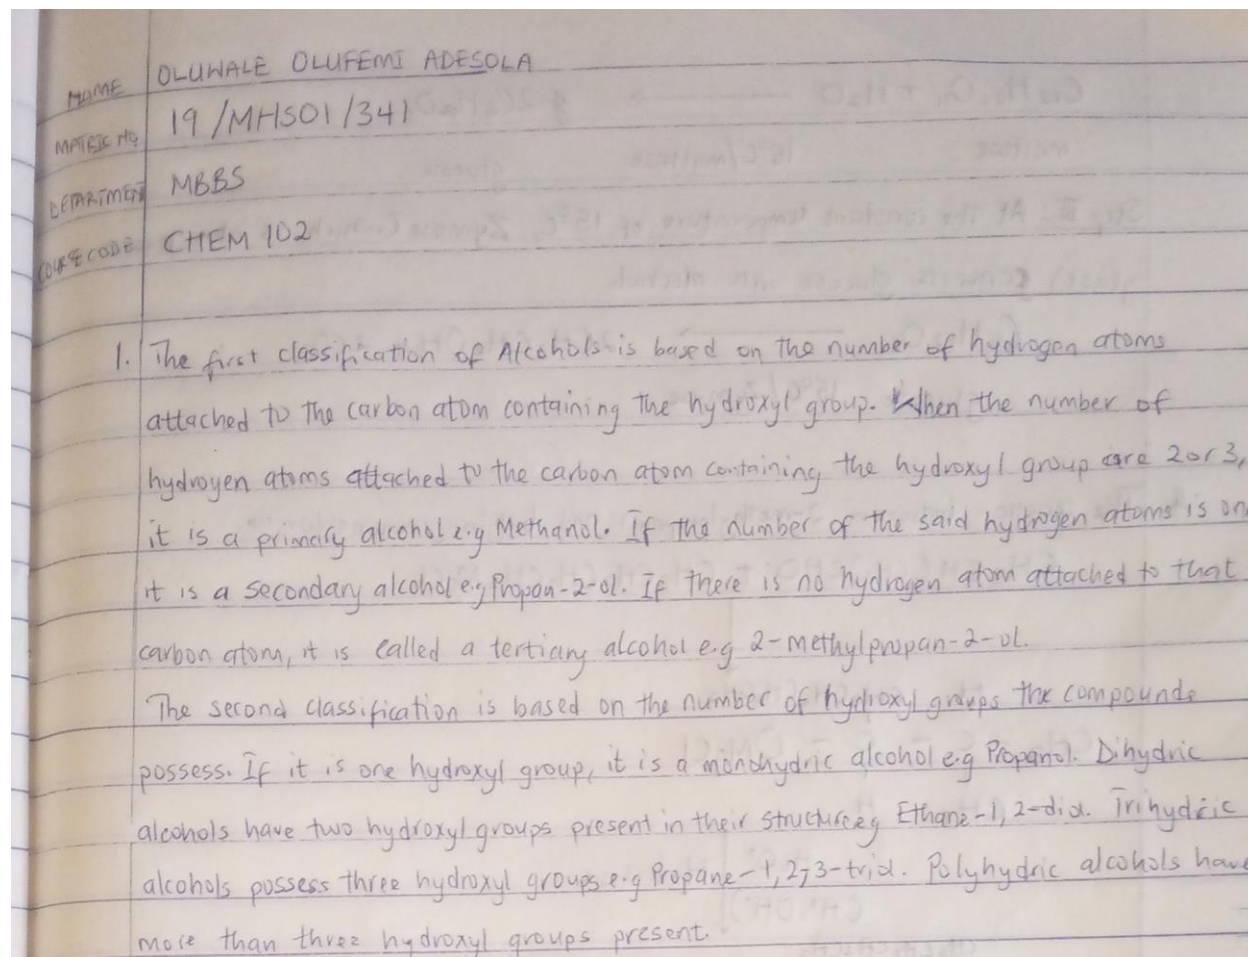 NAME OLUWALE OLUFEMI ADESOLA
MATRIC NO 19/MHS01/341
DEPARTMENT MBBS
COURSE CODE CHEM 102
1. The first classification of Alcohols is based on the number of hydrogen atoms
attached to the carbon atom containing the hydroxyl group. When the number of
hydrogen atoms attached to the carbon atom containing the hydroxyl group are 2 or 3,
it is a primary alcohol e.g Methanol. If the number of the said hydrogen atoms is
it is a secondary alcohol e.g Propan-2-ol. If there is no hydrogen atom attached to that
carbon atom, it is called a tertiary alcohol e.g 2-methylpropan-2-ol.
The second classification is based on the number of hydroxyl groups the compounds
possess. If it is one hydroxyl group, it is a monohydric alcohol e.g Propanol. Dihydric
alcohols have two hydroxyl groups present in their structure e.g Ethane-1,2-diol. Trihydric
alcohols possess three hydroxyl groups e.g Propane-1,2,3-triol. Polyhydric alcohols have
more than three hydroxyl groups present.